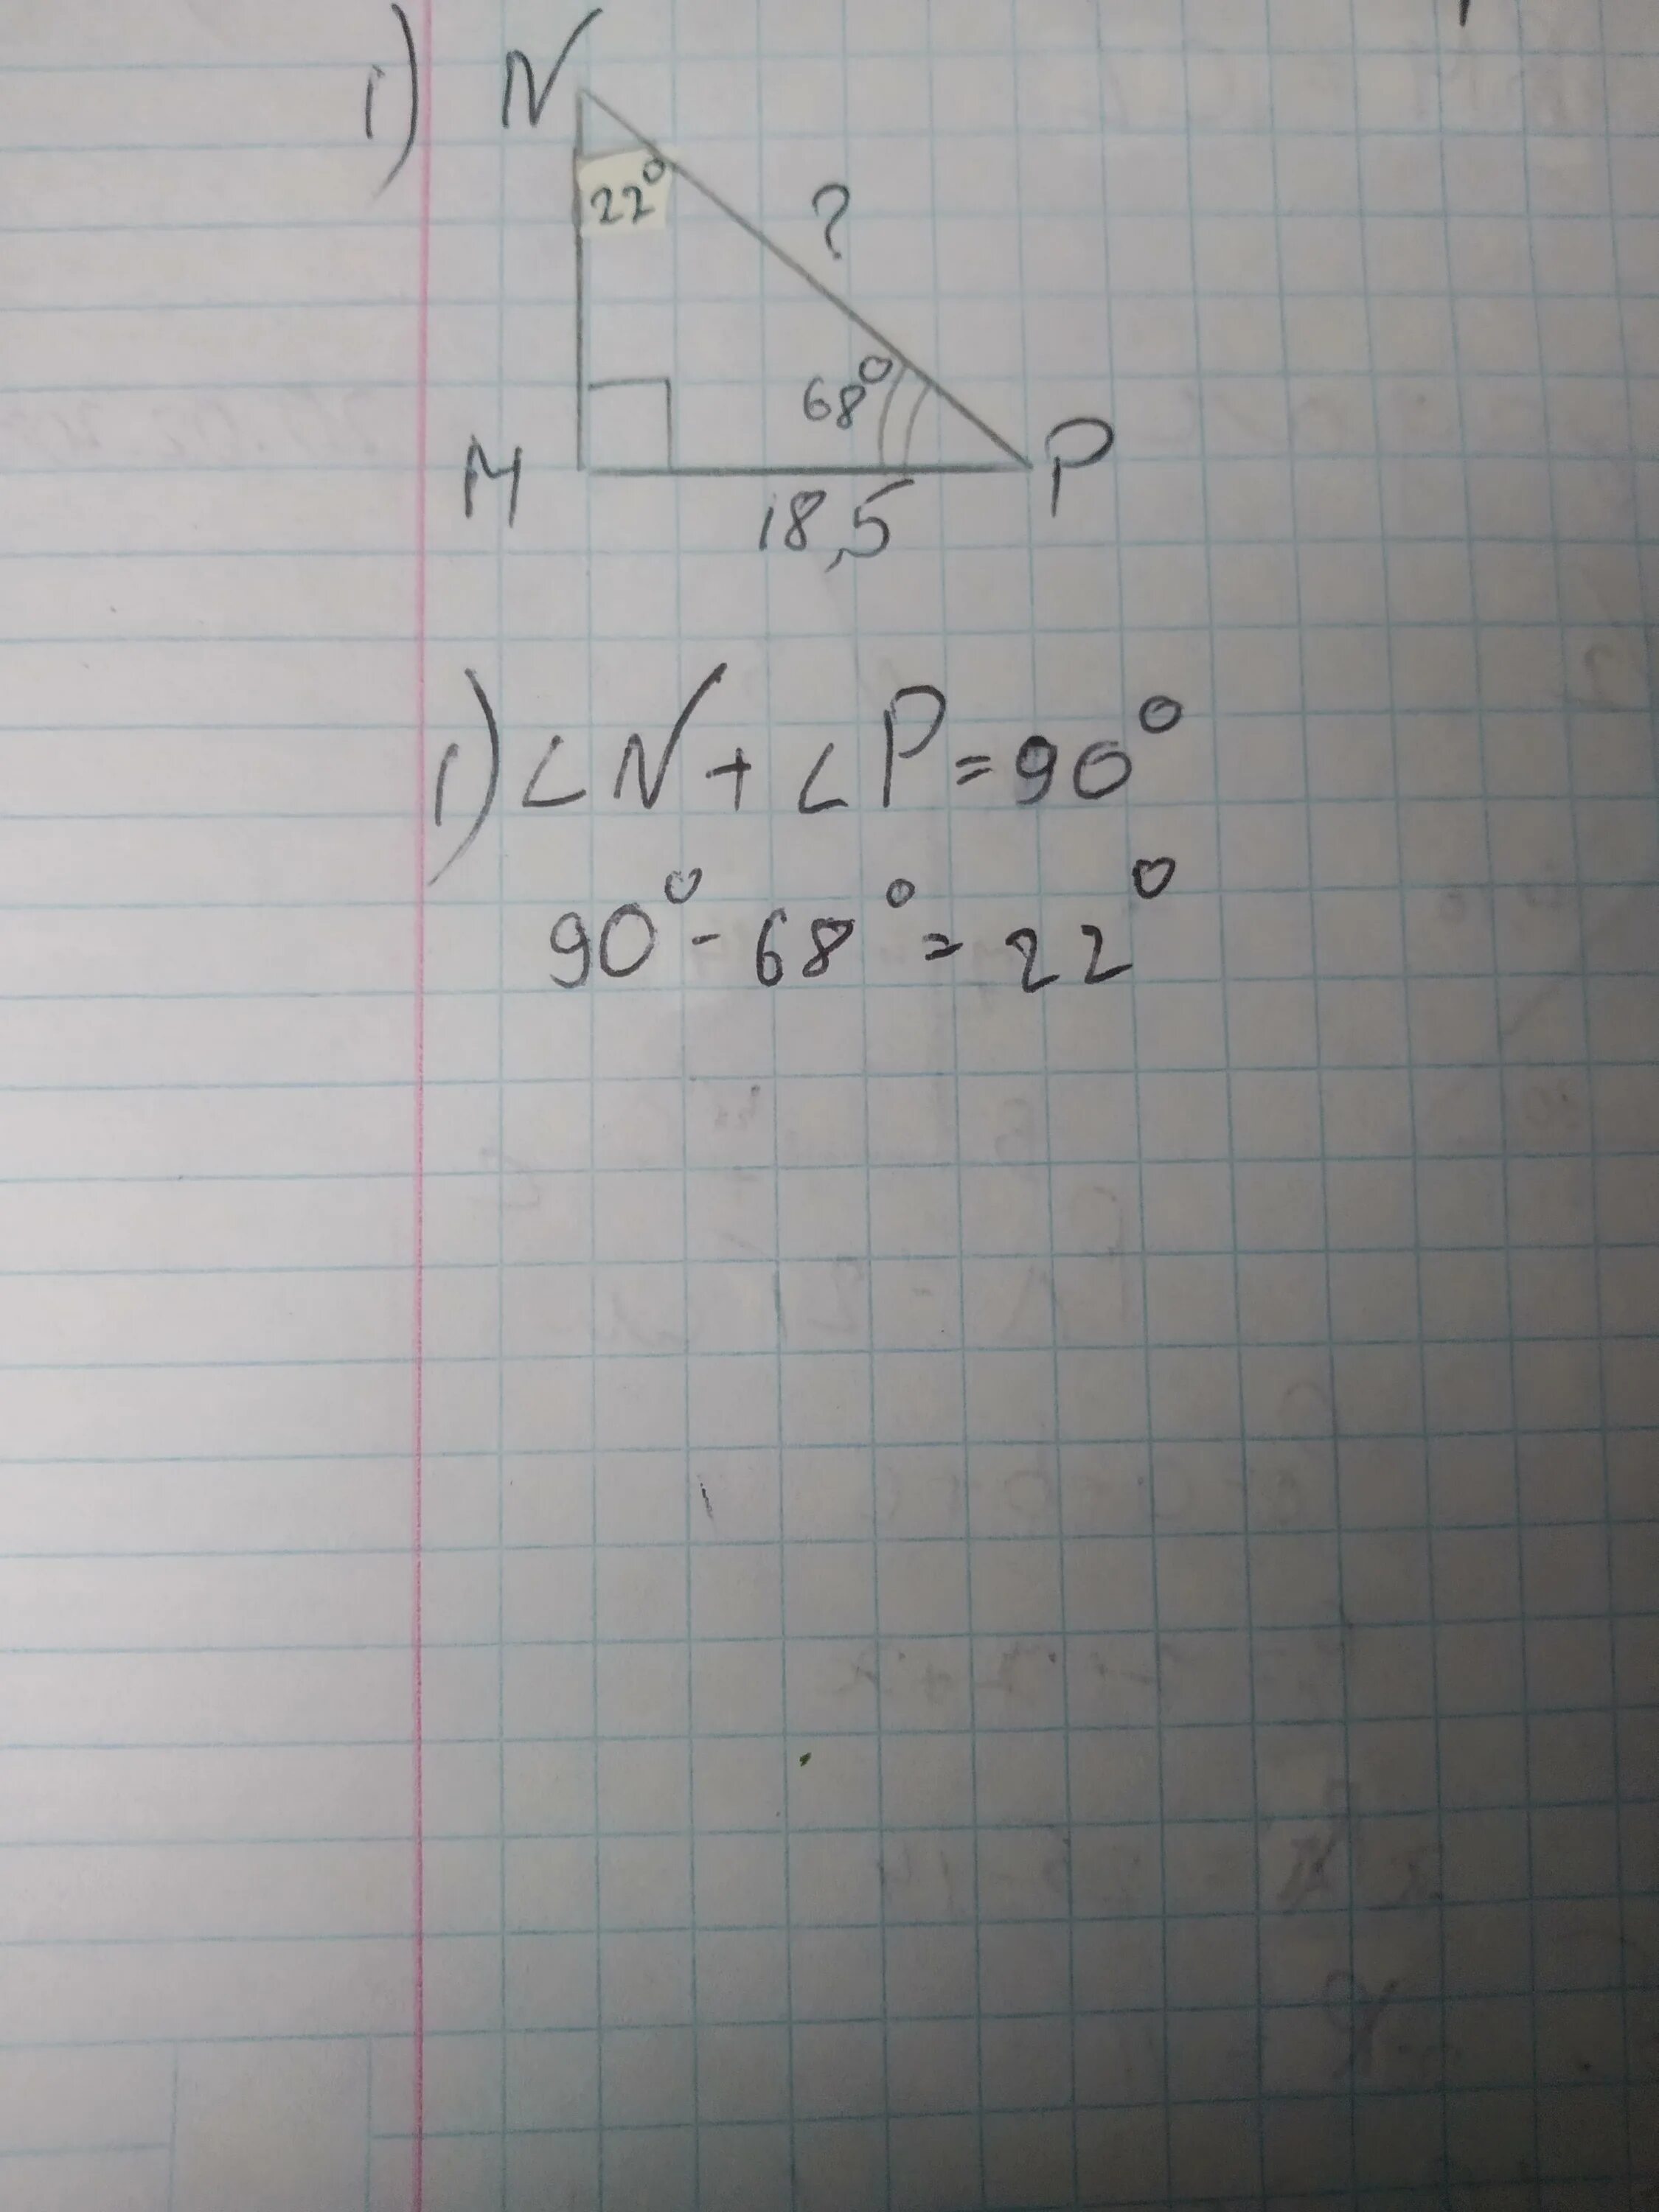 1) N
22°
?
68°
M P
18,5
1) ∠N + ∠P = 90°
90° - 68° = 22°